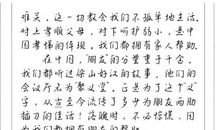 难关。这一切教会我们不孤单地生活。
对上孝顺父母，对下呵护弱小，是中
国孝悌的传统。我们都拥有家人帮助。
在中国，朋友的分量重于千金。
我们都听过梁山好汉的故事，他们的
会议厅名为“聚义堂”。还是为了这个“义”
字，从古至今流传了多少为朋友两肋
插刀的佳话！落魄时，不必惊慌，因
为我们都拥有朋友的帮助